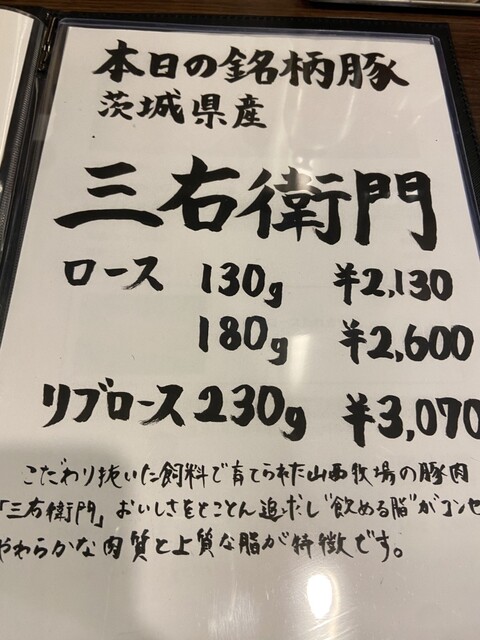 本日の銘柄豚
茨城県産
三右衛門
ロース 130g ¥2,130
180g ¥2,600
リブロース 230g ¥3,070
こだわり抜いた飼料で育てられた山西牧場の豚肉
「三右衛門」おいしさをとことん追求し"飲める脂"がコンセ
やわらかな肉質と上質な脂が特徴です。